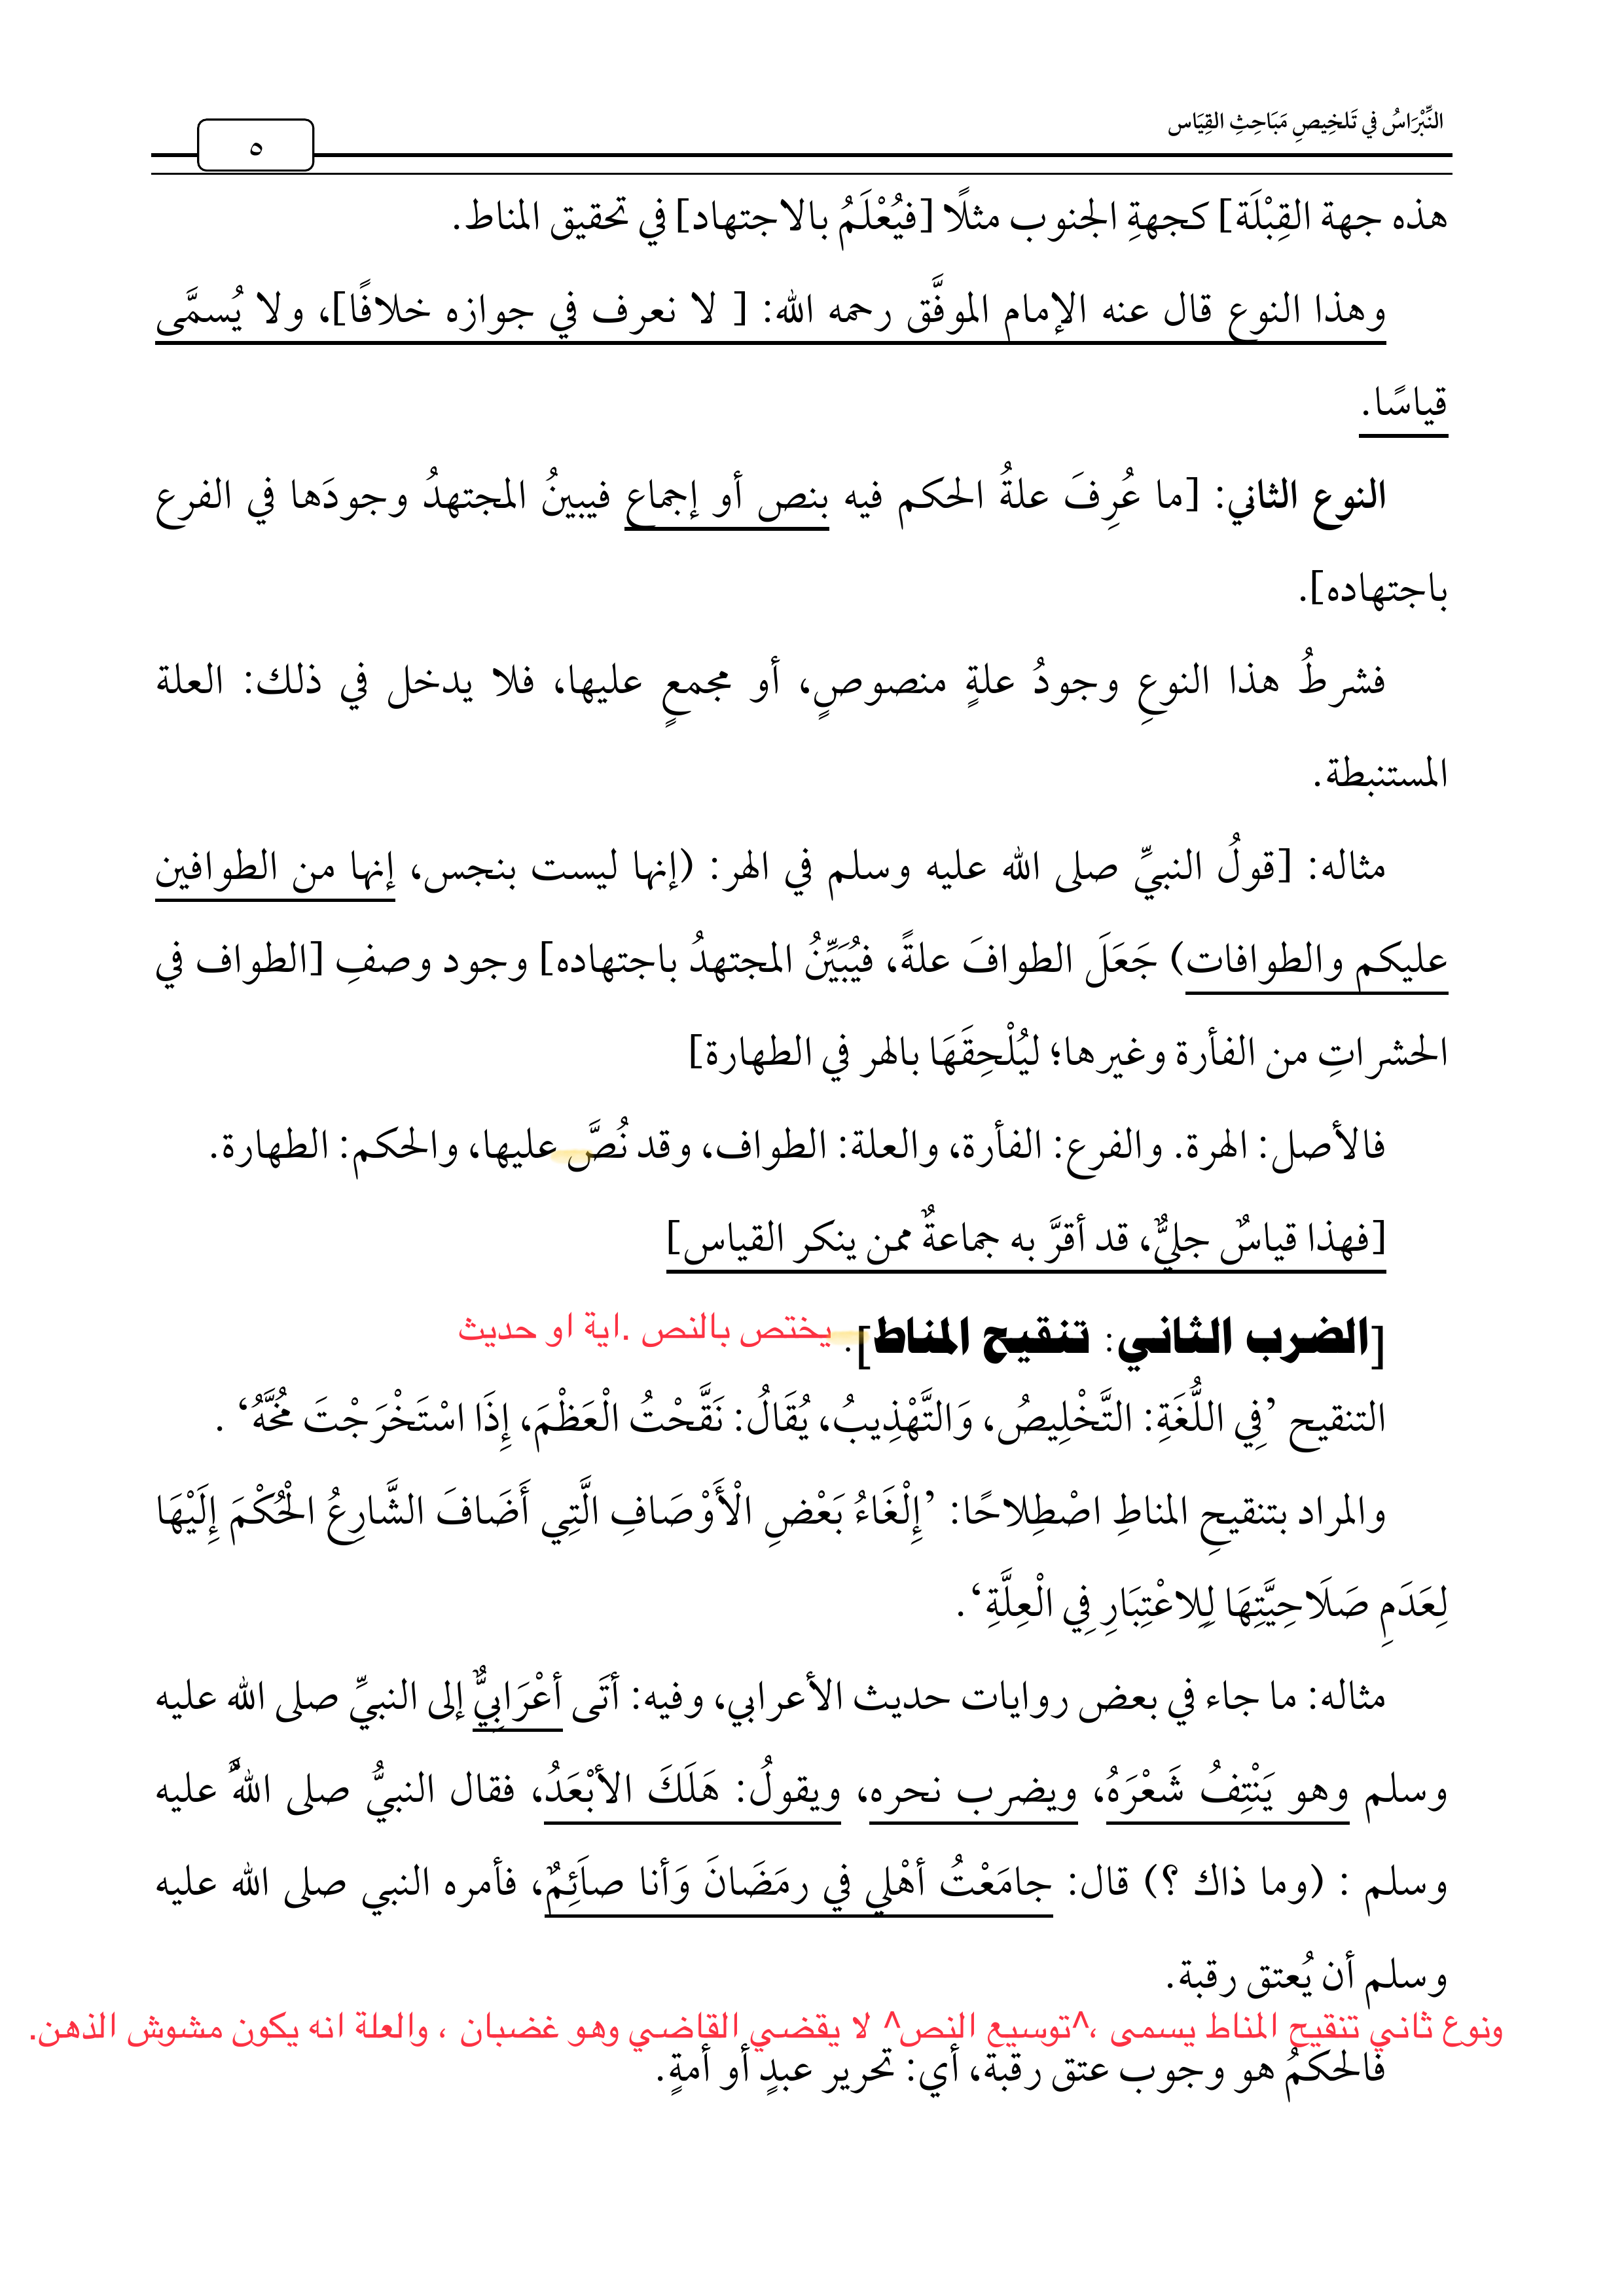 النِّبْرَاسُ في تَلخِيصِ مَبَاحِثِ القِيَاس
٥
هذه جهة القِبْلَة] كجهةِ الجنوب مثلًا [فيُعْلَمُ بالاجتهاد] في تحقيق المناط.
وهذا النوع قال عنه الإمام الموفَّق رحمه الله: [ لا نعرف في جوازه خلافًا]، ولا يُسمَّى
قياسًا.
النوع الثاني: [ما عُرِفَ علةُ الحكم فيه بنص أو إجماع فيبينُ المجتهدُ وجودَها في الفرع
باجتهاده].
فشرطُ هذا النوعِ وجودُ علةٍ منصوصٍ، أو مجمعٍ عليها، فلا يدخل في ذلك: العلة
المستنبطة.
مثاله: [قولُ النبيِّ صلى الله عليه وسلم في الهر: (إنها ليست بنجس، إنها من الطوافين
عليكم والطوافات) جَعَلَ الطوافَ علةً، فيُبَيِّنُ المجتهدُ باجتهاده] وجود وصفِ [الطواف في
الحشراتِ من الفأرة وغيرها؛ ليُلْحِقَهَا بالهر في الطهارة]
فالأصل: الهرة. والفرع: الفأرة، والعلة: الطواف، وقد نُصَّ عليها، والحكم: الطهارة.
[فهذا قياسٌ جليٌّ، قد أقرَّ به جماعةٌ ممن ينكر القياس]
[الضرب الثاني: تنقيح المناط]. يختص بالنص .اية او حديث
التنقيح ’فِي اللُّغَةِ: التَّخْلِيصُ، وَالتَّهْذِيبُ، يُقَالُ: نَقَّحْتُ الْعَظْمَ، إِذَا اسْتَخْرَجْتَ مُخَّهُ‘ .
والمراد بتنقيحِ المناطِ اصْطِلاحًا: ’إِلْغَاءُ بَعْضِ الْأَوْصَافِ الَّتِي أَضَافَ الشَّارِعُ الْحُكْمَ إِلَيْهَا
لِعَدَمِ صَلَاحِيَّتِهَا لِلِاعْتِبَارِ فِي الْعِلَّةِ‘.
مثاله: ما جاء في بعض روايات حديث الأعرابي، وفيه: أتَى أعْرَابِيٌّ إلى النبيِّ صلى الله عليه
وسلم وهو يَنْتِفُ شَعْرَهُ، ويضرب نحره، ويقولُ: هَلَكَ الأبْعَدُ، فقال النبيُّ صلى اللهُ عليه
وسلم : (وما ذاك ؟) قال: جامَعْتُ أهْلي في رمَضَانَ وَأنا صاَئِمٌ، فأمره النبي صلى الله عليه
وسلم أن يُعتق رقبة.
ونوع ثاني تنقيح المناط يسمى ،^توسيع النص^ لا يقضي القاضي وهو غضبان ، والعلة انه يكون مشوش الذهن.
فالحكمُ هو وجوب عتق رقبة، أي: تحرير عبدٍ أو أمةٍ.